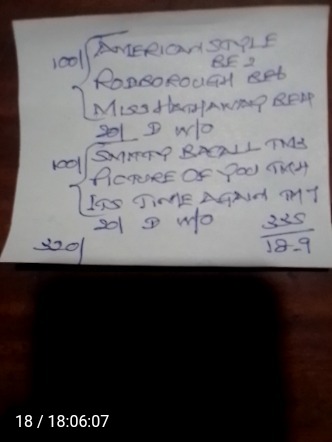 100/ AMERICAN STYLE
BE 2
RODBOROUGH BE6
MISS HATHAWAY BE4
20/ D W/O
100/ SMITTY BACALL TM3
PICTURE OF YOU TM4
ITS TIME AGAIN TM 7
20/ D W/O
335
320/ 18-9
18 / 18:06:07